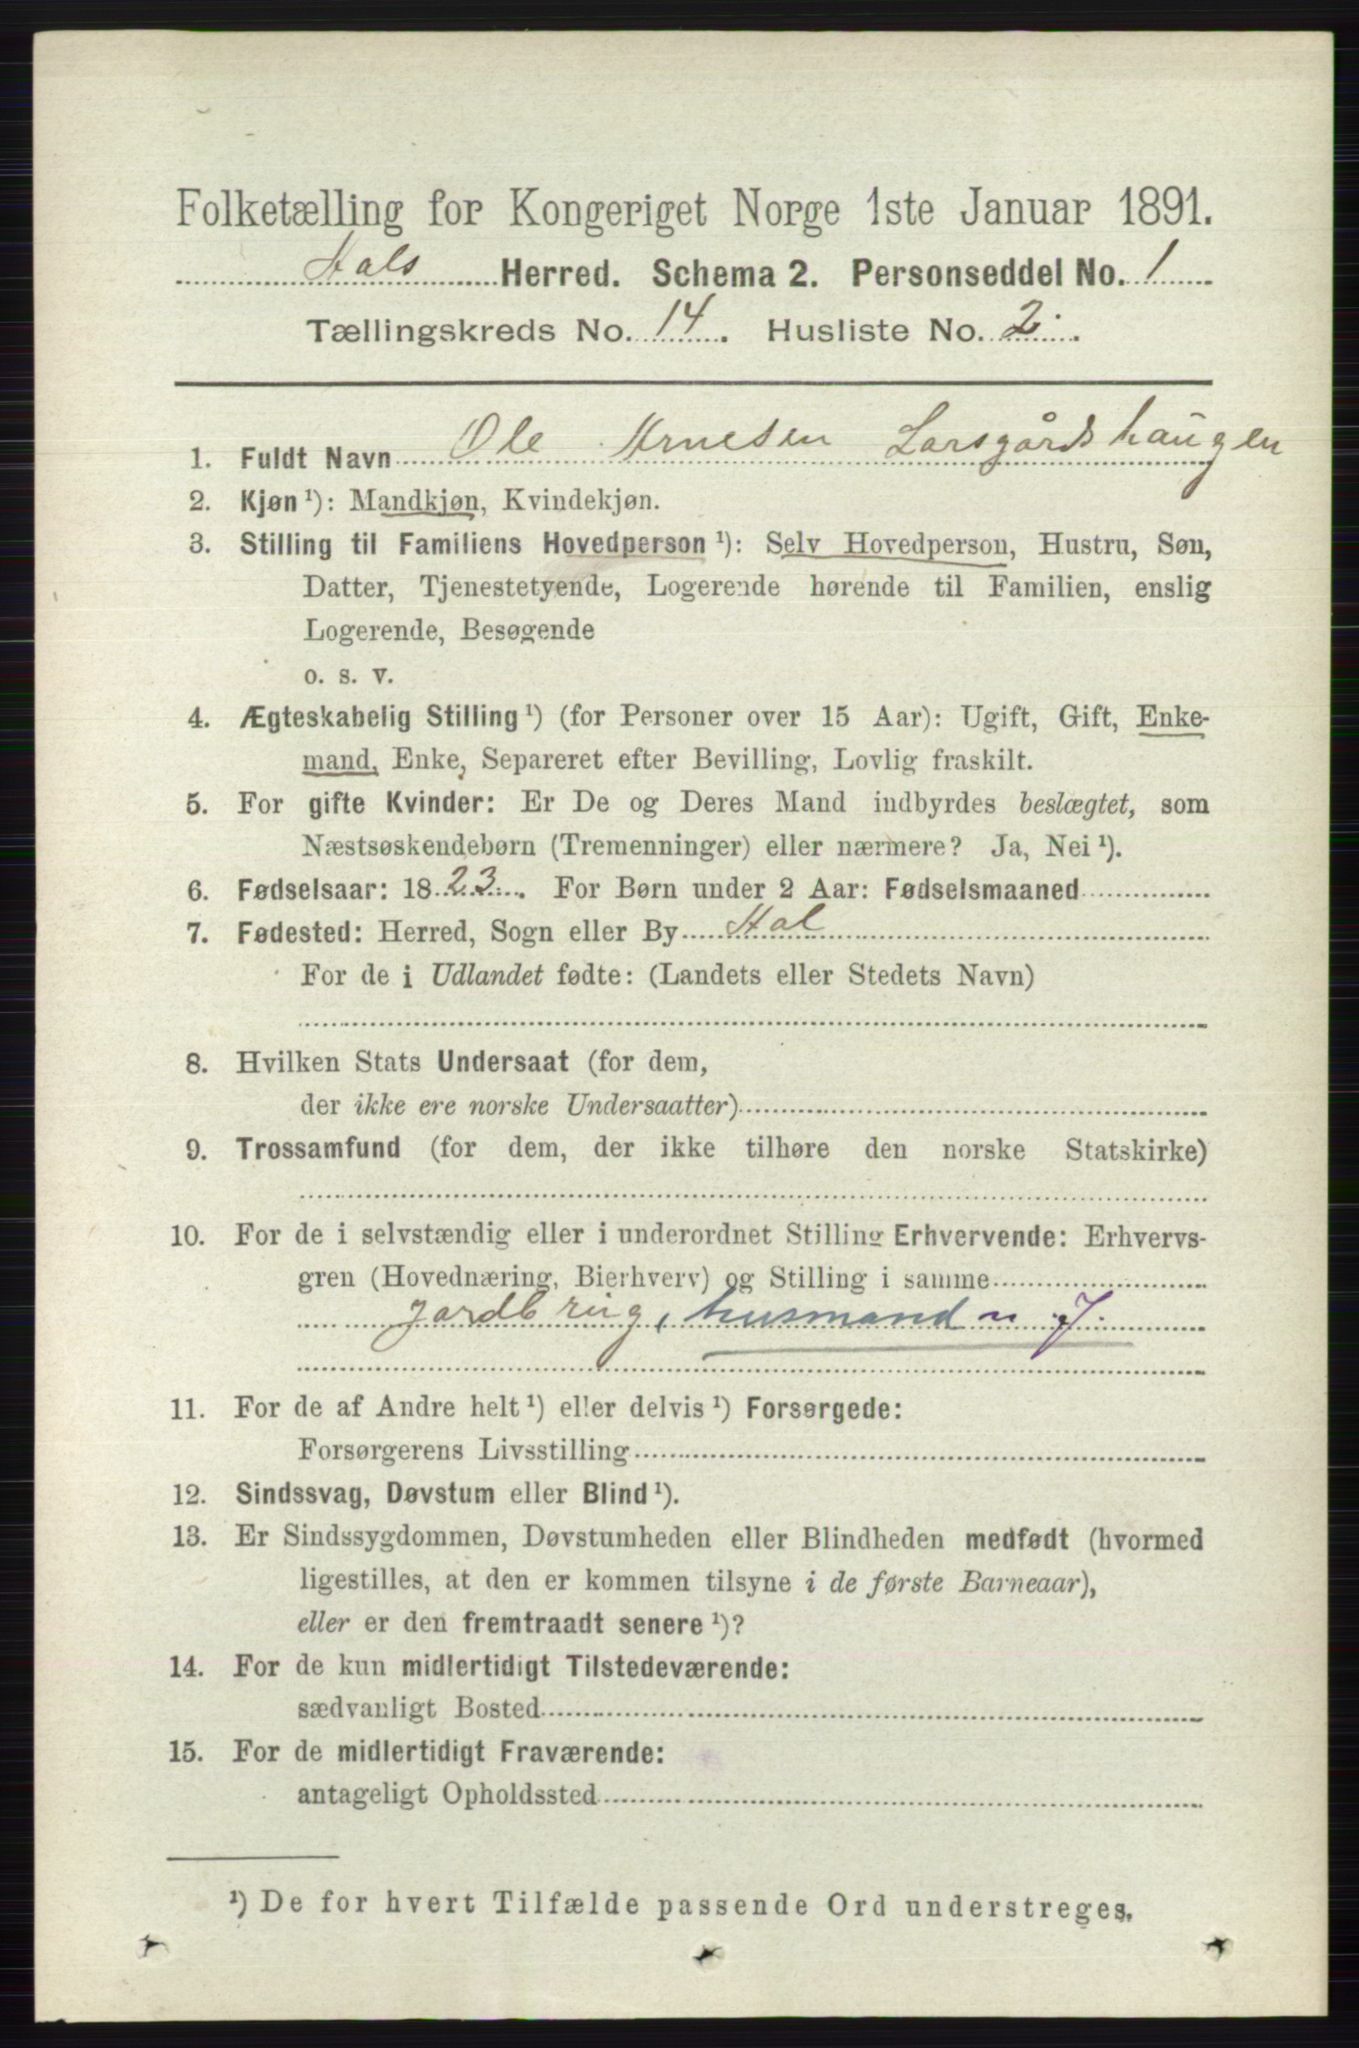 Folketælling for Kongeriget Norge 1ste Januar 1891.
Hals Herred. Schema 2. Personseddel No. 1
Tællingskreds No. 14. Husliste No. 2.
1. Fuldt Navn Ole Arnesen Larsgårdshaugen
2. Kjøn ¹): Mandkjøn, Kvindekjøn.
3. Stilling til Familiens Hovedperson ¹): Selv Hovedperson, Hustru, Søn,
Datter, Tjenestetyende, Logerende hørende til Familien, enslig
Logerende, Besøgende
o. s. v.
4. Ægteskabelig Stilling ¹) (for Personer over 15 Aar): Ugift, Gift, Enke-
mand, Enke, Separeret efter Bevilling, Lovlig fraskilt.
5. For gifte Kvinder: Er De og Deres Mand indbyrdes beslægtet, som
Næstsøskendebørn (Tremenninger) eller nærmere? Ja, Nei ¹).
6. Fødselsaar: 1823. For Børn under 2 Aar: Fødselsmaaned
7. Fødested: Herred, Sogn eller By Hol
For de i Udlandet fødte: (Landets eller Stedets Navn)
8. Hvilken Stats Undersaat (for dem,
der ikke ere norske Undersaatter)
9. Trossamfund (for dem, der ikke tilhøre den norske Statskirke)
10. For de i selvstændig eller i underordnet Stilling Erhvervende: Erhvervs-
gren (Hovednæring, Bierhverv) og Stilling i samme
Jordbrug, husmand m J.
11. For de af Andre helt ¹) eller delvis ¹) Forsørgede:
Forsørgerens Livsstilling
12. Sindssvag, Døvstum eller Blind ¹).
13. Er Sindssygdommen, Døvstumheden eller Blindheden medfødt (hvormed
ligestilles, at den er kommen tilsyne i de første Barneaar),
eller er den fremtraadt senere ¹)?
14. For de kun midlertidigt Tilstedeværende:
sædvanligt Bosted
15. For de midlertidigt Fraværende:
antageligt Opholdssted
¹) De for hvert Tilfælde passende Ord understreges.